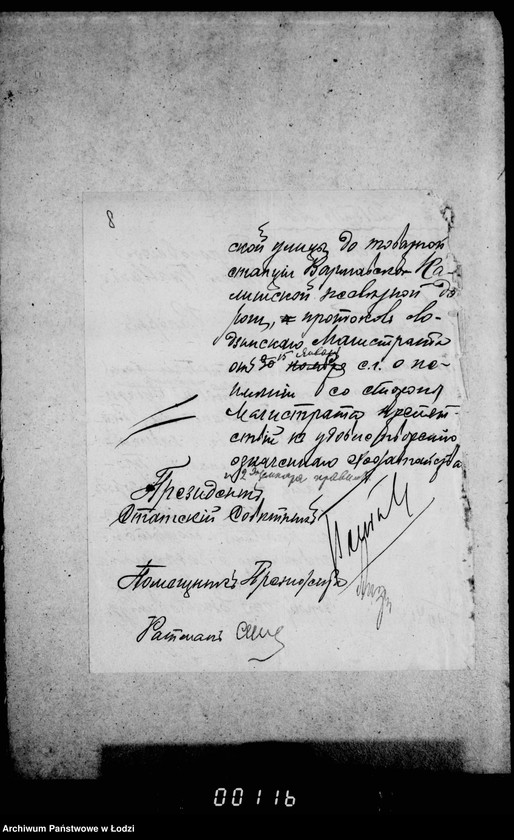 8
ской улицы до товарной
станции Варшавско-Ка-
лишской железной до
роги, протокол Ло-
дзинского Магистрата
от 15 Января с.г. о не-
имении со стороны
Магистрата препят-
ствий к удовлетворению
означенного ходатайства
и 2 правил
Президентъ,
Статскій Совѣтникъ
Помощникъ
Ратманъ
00116
Archiwum Państwowe w Łodzi